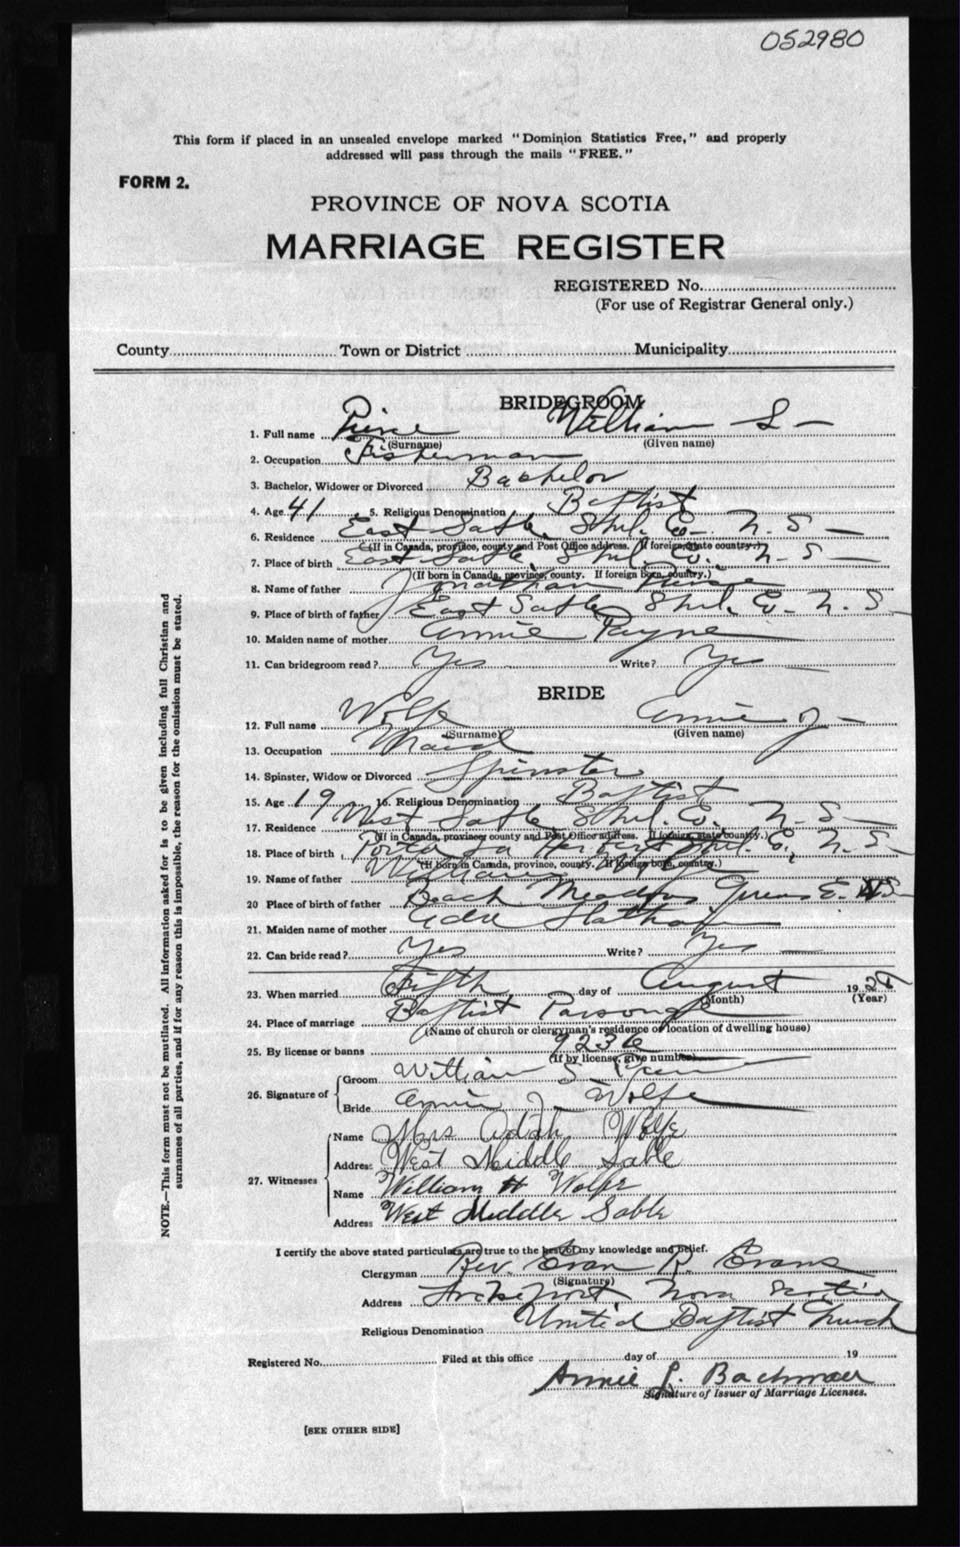 052980
This form if placed in an unsealed envelope marked "Dominion Statistics Free," and properly
addressed will pass through the mails "FREE."
FORM 2.
PROVINCE OF NOVA SCOTIA
MARRIAGE REGISTER
REGISTERED No.
(For use of Registrar General only.)
County Town or District Municipality
BRIDEGROOM
1. Full name William S
(Surname) (Given name)
2. Occupation Fisherman
3. Bachelor, Widower or Divorced Bachelor
4. Age 41 5. Religious Denomination Baptist
6. Residence East Sable, Shel. Co. N. S
(If in Canada, province, county and Post Office address. If foreign, state country.)
7. Place of birth East Sable, Shel. Co. N. S
(If born in Canada, province, county. If foreign born, country.)
8. Name of father Jonathan
9. Place of birth of father East Sable Shel. Co. N. S
10. Maiden name of mother Annie Payne
11. Can bridegroom read? Yes Write? Yes
BRIDE
12. Full name Wolfe Annie J
(Surname) (Given name)
13. Occupation Maid
14. Spinster, Widow or Divorced Spinster
15. Age 19 16. Religious Denomination Baptist
17. Residence West Sable Shel. Co. N. S
(If in Canada, province, county and Post Office address. If foreign, state country.)
18. Place of birth Port La Herbert Shel. Co., N. S
(If born in Canada, province, county. If foreign born, country.)
19. Name of father William Wolfe
20 Place of birth of father Beach Meadows Queens Co. N S
21. Maiden name of mother
22. Can bride read? Yes Write? Yes
23. When married Fifth day of August 19
(Month) (Year)
24. Place of marriage Baptist Parsonage
(Name of church or clergyman's residence or location of dwelling house)
25. By license or banns 9236
(If by license, give number)
26. Signature of Groom William S
Bride Annie J Wolfe
27. Witnesses Name Mrs Adah Wolfe
Address West Middle Sable
Name William H Wolfe
Address West Middle Sable
I certify the above stated particulars are true to the best of my knowledge and belief.
Clergyman Rev. Evan R. Evans
(Signature)
Address Lockeport, Nova Scotia
Religious Denomination United Baptist Church
Registered No. Filed at this office day of 19
Annie L. Bachman
Signature of Issuer of Marriage Licenses.
[SEE OTHER SIDE]
NOTE.—This form must not be mutilated. All information asked for is to be given including full Christian and
surnames of all parties, and if for any reason this is impossible, the reason for the omission must be stated.